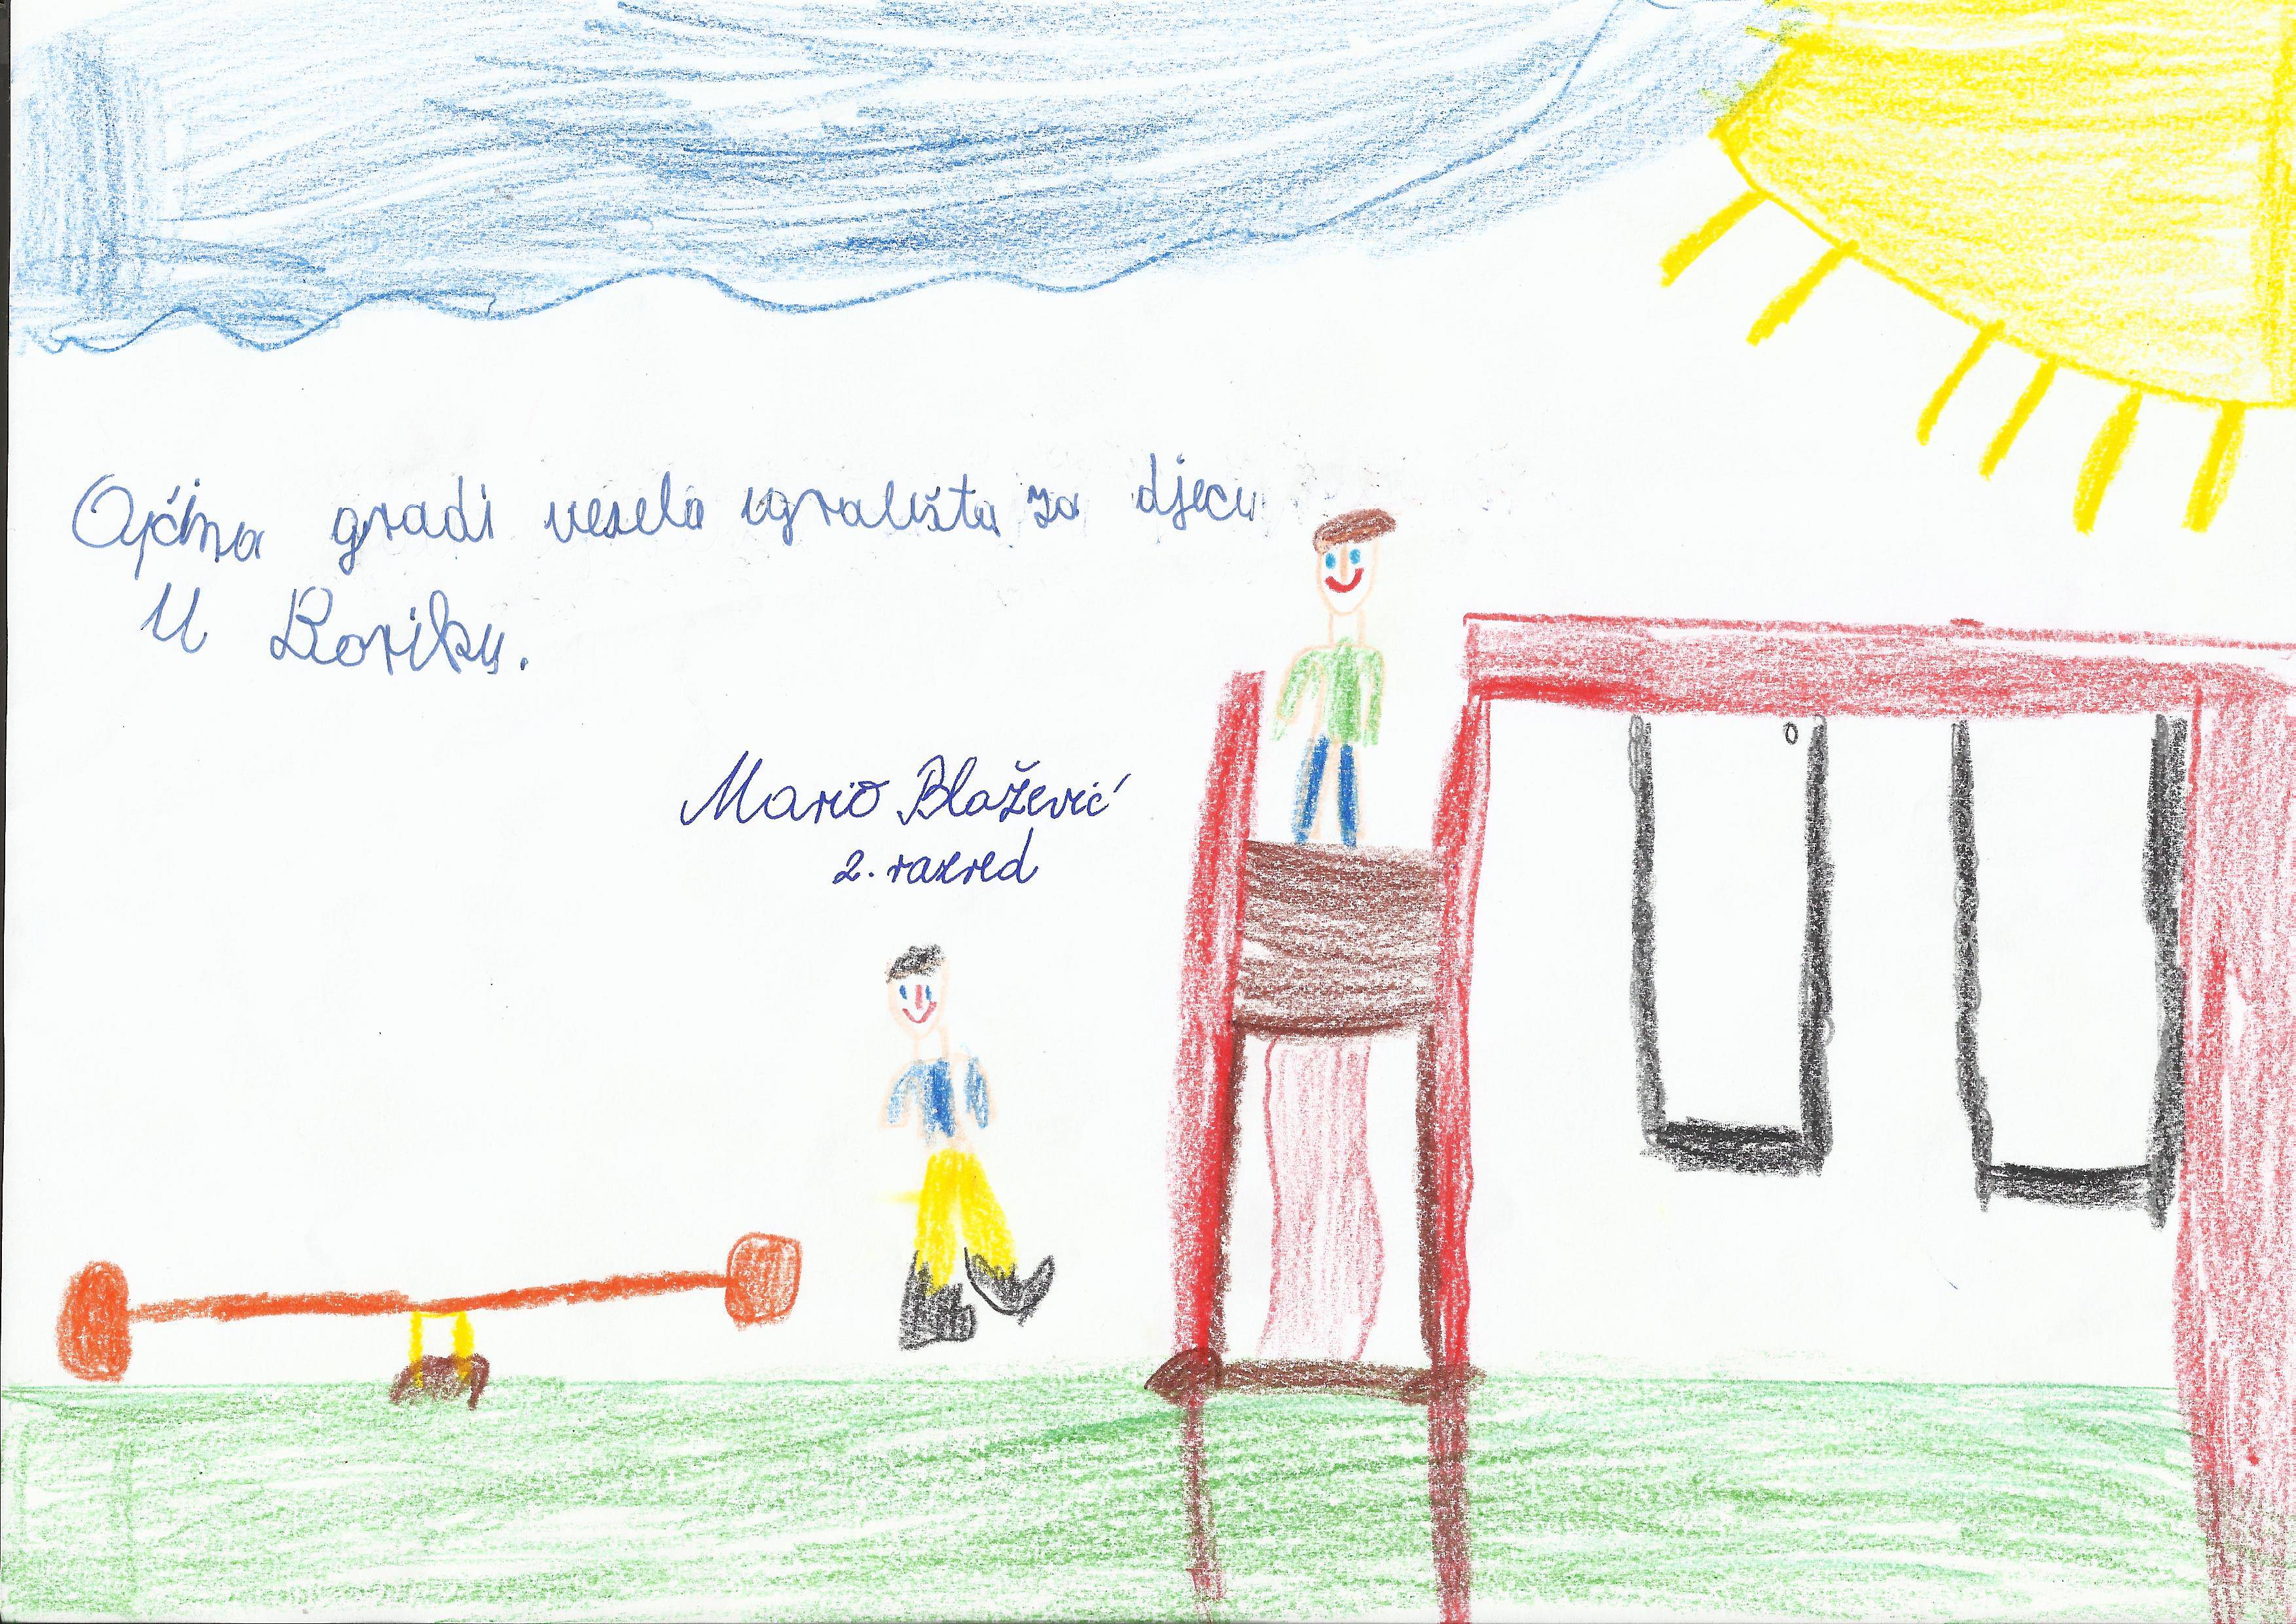 Općina gradi vesela igrališta za djecu
U Boriku.
Mario Blažević
2. razred